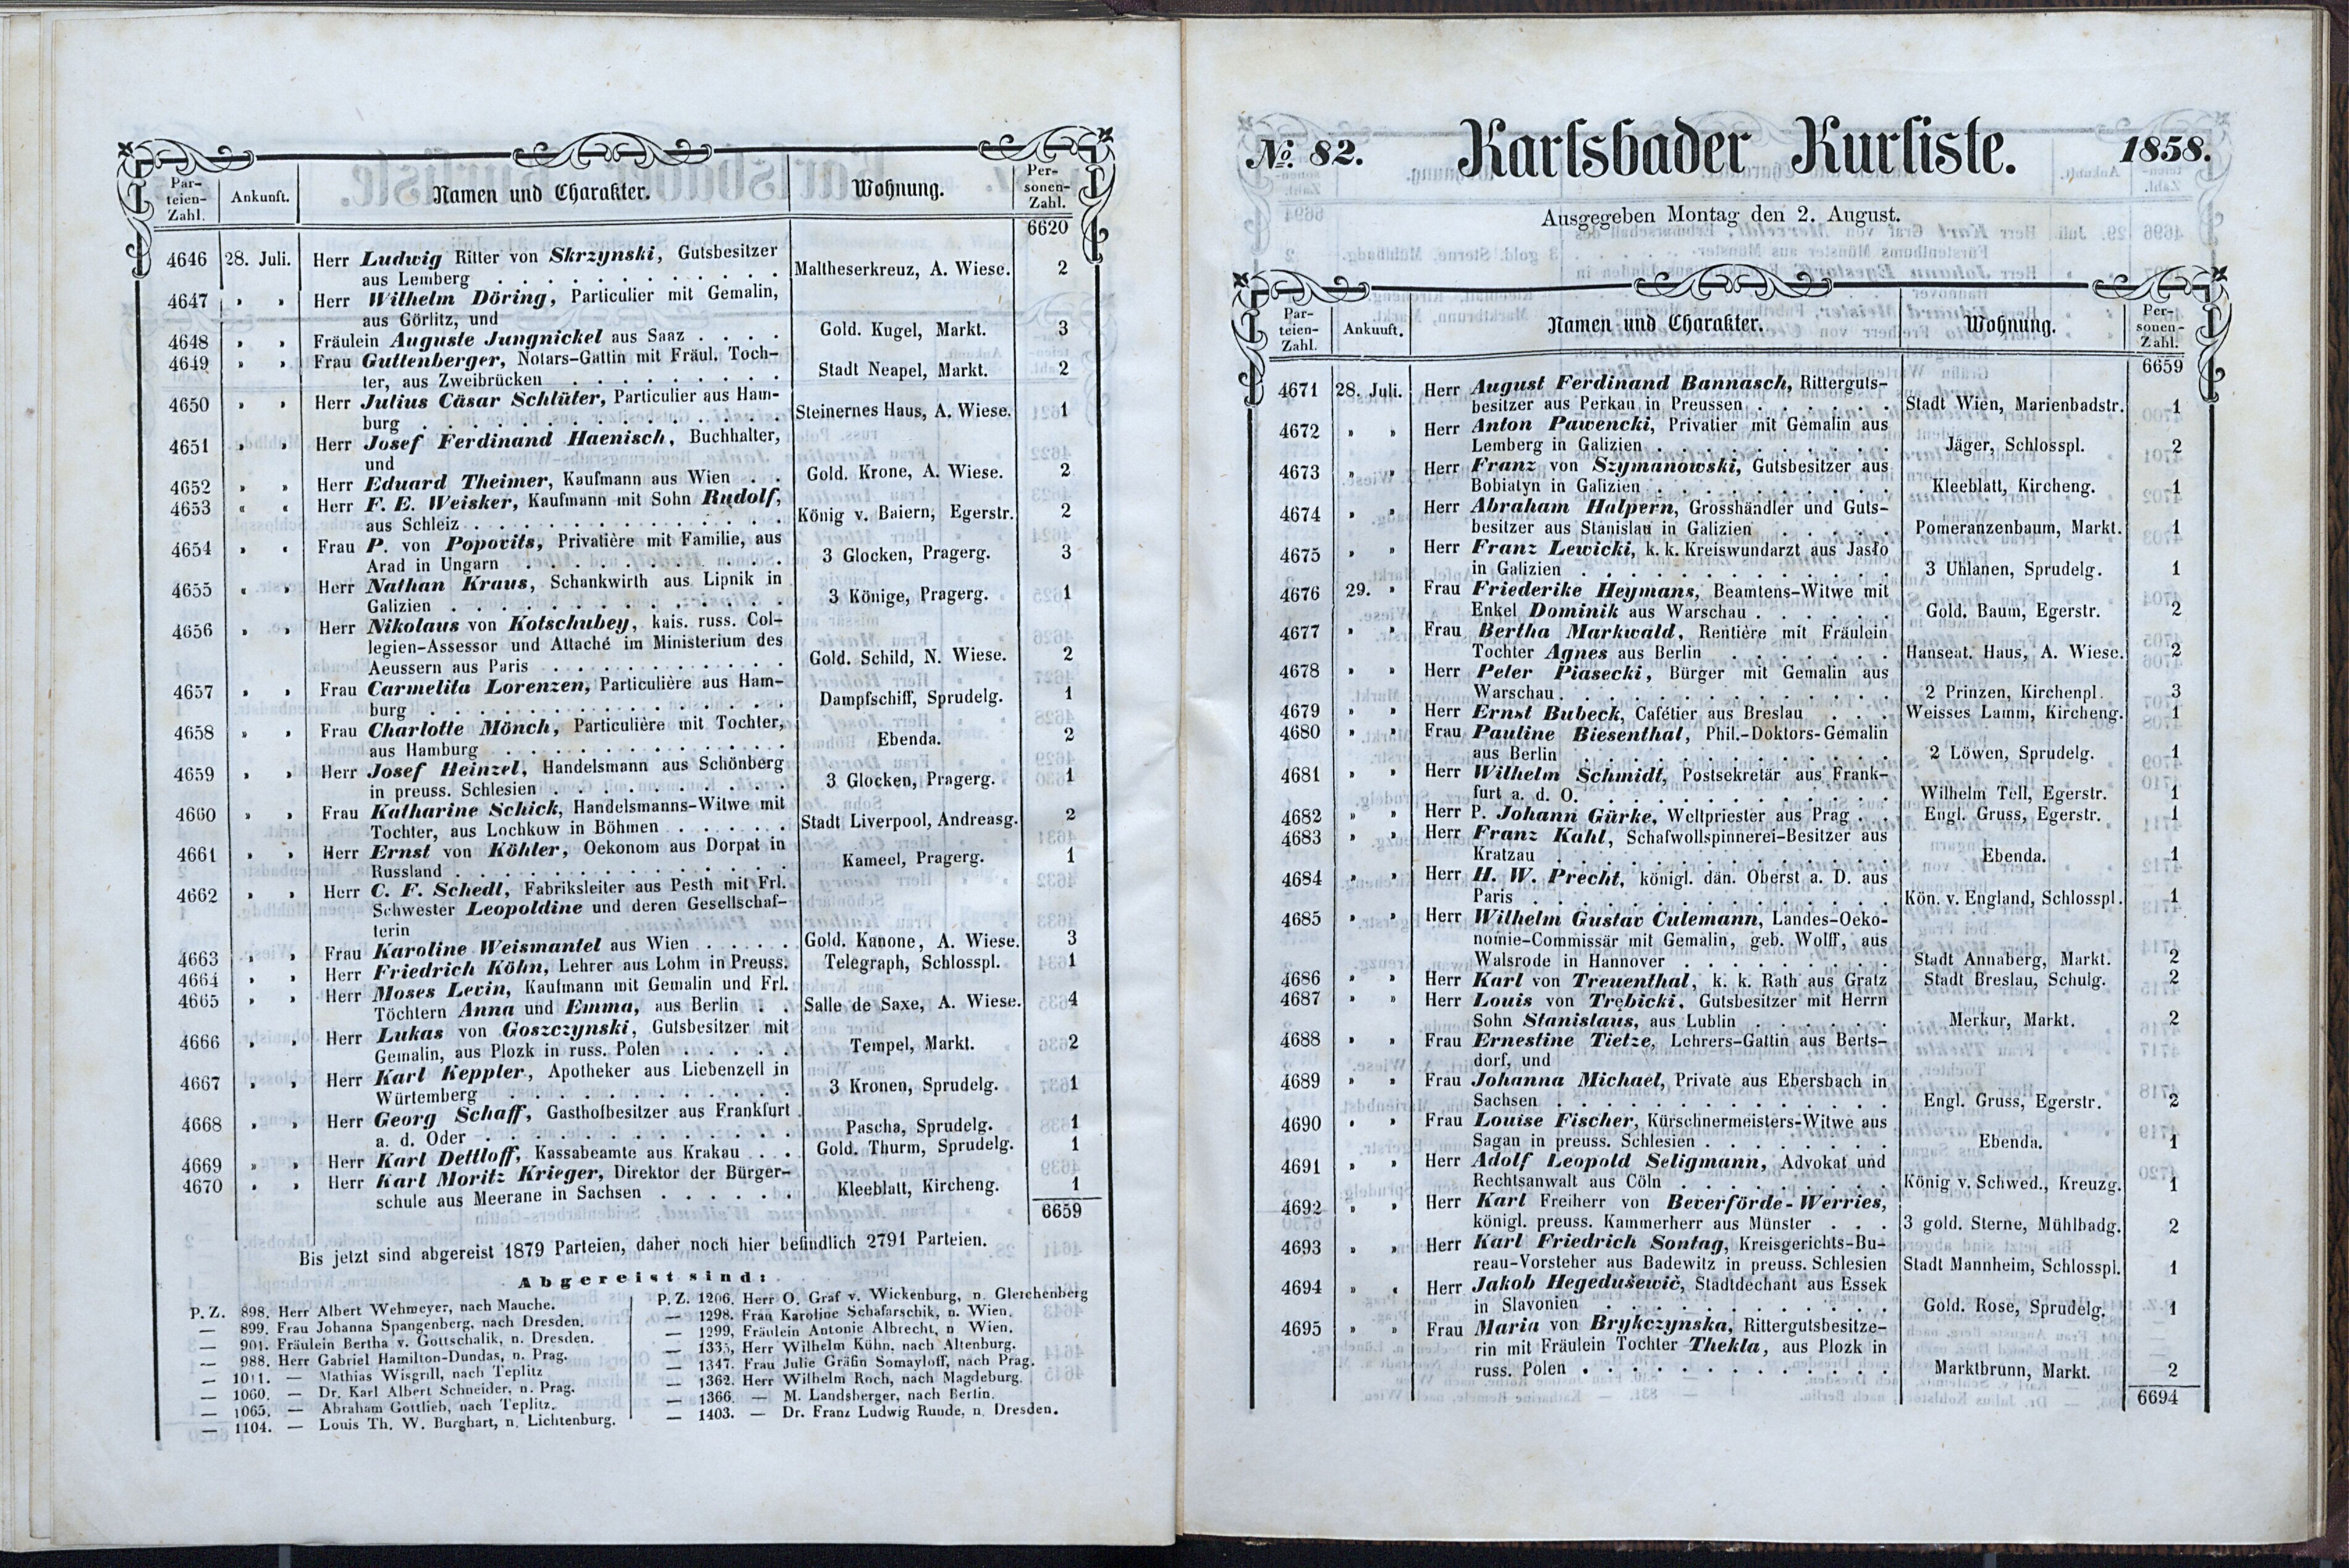 Par-
teien-
Zahl.
Ankunft.
Namen und Charakter.
Wohnung.
Per-
sonen-
Zahl.
6620
4646 28. Juli. Herr Ludwig Ritter von Skrzynski, Gutsbesitzer
aus Lemberg . . . . . . . . Maltheserkreuz, A. Wiese. 2
4647 » » Herr Wilhelm Döring, Particulier mit Gemalin,
aus Görlitz, und
4648 » » Fräulein Auguste Jungnickel aus Saaz . . . . Gold. Kugel, Markt. 3
4649 » » Frau Guttenberger, Notars-Gattin mit Fräul. Toch-
ter, aus Zweibrücken . . . . . . . . . Stadt Neapel, Markt. 2
4650 » » Herr Julius Cäsar Schlüter, Particulier aus Ham-
burg . . . . . . . . . . . . . . Steinernes Haus, A. Wiese. 1
4651 » » Herr Josef Ferdinand Haenisch, Buchhalter,
und
4652 » » Herr Eduard Theimer, Kaufmann aus Wien . . Gold. Krone, A. Wiese. 2
4653 « « Herr F. E. Weisker, Kaufmann mit Sohn Rudolf,
aus Schleiz . . . . . . . . . . . . . König v. Baiern, Egerstr. 2
4654 » « Frau P. von Popovits, Privatière mit Familie, aus
Arad in Ungarn . . . . . . . . . . . 3 Glocken, Pragerg. 3
4655 « » Herr Nathan Kraus, Schankwirth aus Lipnik in
Galizien . . . . . . . . . . . . . . 3 Könige, Pragerg. 1
4656 » » Herr Nikolaus von Kotschubey, kais. russ. Col-
legien-Assessor und Attaché im Ministerium des
Aeussern aus Paris . . . . . . . . . . Gold. Schild, N. Wiese. 2
4657 » » Frau Carmelita Lorenzen, Particulière aus Ham-
burg . . . . . . . . . . . . . . Dampfschiff, Sprudelg. 1
4658 » » Frau Charlotte Mönch, Particulière mit Tochter,
aus Hamburg . . . . . . . . . . . . Ebenda. 2
4659 » » Herr Josef Heinzel, Handelsmann aus Schönberg
in preuss. Schlesien . . . . . . . . . . 3 Glocken, Pragerg. 1
4660 » » Frau Katharine Schick, Handelsmanns-Witwe mit
Tochter, aus Lochkow in Böhmen . . . . . Stadt Liverpool, Andreasg. 2
4661 » » Herr Ernst von Köhler, Oekonom aus Dorpat in
Russland . . . . . . . . . . . . . . Kameel, Pragerg. 1
4662 » » Herr C. F. Schedl, Fabriksleiter aus Pesth mit Frl.
Schwester Leopoldine und deren Gesellschaf-
terin
4663 » » Frau Karoline Weismantel aus Wien . . . . . Gold. Kanone, A. Wiese. 3
4664 » » Herr Friedrich Köhn, Lehrer aus Lohm in Preuss. Telegraph, Schlosspl. 1
4665 » » Herr Moses Levin, Kaufmann mit Gemalin und Frl.
Töchtern Anna und Emma, aus Berlin . . Salle de Saxe, A. Wiese. 4
4666 » » Herr Lukas von Goszczynski, Gutsbesitzer mit
Gemalin, aus Plozk in russ. Polen . . . . . Tempel, Markt. 2
4667 » » Herr Karl Keppler, Apotheker aus Liebenzell in
Würtemberg . . . . . . . . . . . . 3 Kronen, Sprudelg. 1
4668 » » Herr Georg Schaff, Gasthofbesitzer aus Frankfurt
a. d. Oder . . . . . . . . . . . . . Pascha, Sprudelg. 1
4669 » » Herr Karl Dettloff, Kassabeamte aus Krakau . . . Gold. Thurm, Sprudelg. 1
4670 » » Herr Karl Moritz Krieger, Direktor der Bürger-
schule aus Meerane in Sachsen . . . . . . Kleeblatt, Kircheng. 1
6659
Bis jetzt sind abgereist 1879 Parteien, daher noch hier befindlich 2791 Parteien.
Abgereist sind:
P. Z. 898. Herr Albert Wehmeyer, nach Mauche.
— 899. Frau Johanna Spangenberg, nach Dresden.
— 901. Fräulein Bertha v. Gottschalik, n. Dresden.
— 988. Herr Gabriel Hamilton-Dundas, n. Prag.
— 1011. — Mathias Wisgrill, nach Teplitz
— 1060. — Dr. Karl Albert Schneider, n. Prag.
— 1065. — Abraham Gottlieb, nach Teplitz.
— 1104. — Louis Th. W. Burghart, n. Lichtenburg.
P. Z. 1206. Herr O. Graf v. Wickenburg, n. Gleichenberg
— 1298. Frau Karoline Schafarschik, n. Wien.
— 1299. Fräulein Antonie Albrecht, n Wien.
— 1335, Herr Wilhelm Kühn, nach Altenburg.
— 1347. Frau Julie Gräfin Somayloff, nach Prag.
— 1362. Herr Wilhelm Roch, nach Magdeburg.
— 1366. — M. Landsberger, nach Berlin.
— 1403. — Dr. Franz Ludwig Runde, n. Dresden.
No. 82. Karlsbader Kurliste. 1858.
Ausgegeben Montag den 2. August.
Par-
teien-
Zahl.
Ankunft.
Namen und Charakter.
Wohnung.
Per-
sonen-
Zahl.
6659
4671 28. Juli. Herr August Ferdinand Bannasch, Ritterguts-
besitzer aus Perkau in Preussen . . . . . . Stadt Wien, Marienbadstr. 1
4672 » » Herr Anton Pawencki, Privatier mit Gemalin aus
Lemberg in Galizien . . . . . . . . . . Jäger, Schlosspl. 2
4673 » » Herr Franz von Szymanowski, Gutsbesitzer aus
Bobiatyn in Galizien . . . . . . . . . . Kleeblatt, Kircheng. 1
4674 » » Herr Abraham Halpern, Grosshändler und Guts-
besitzer aus Stanislau in Galizien . . . . . Pomeranzenbaum, Markt. 1
4675 » » Herr Franz Lewicki, k. k. Kreiswundarzt aus Jasło
in Galizien . . . . . . . . . . . . . 3 Uhlanen, Sprudelg. 1
4676 29. » Frau Friederike Heymans, Beamtens-Witwe mit
Enkel Dominik aus Warschau . . . . . . Gold. Baum, Egerstr. 2
4677 » » Frau Bertha Markwald, Rentière mit Fräulein
Tochter Agnes aus Berlin . . . . . . . Hanseat. Haus, A. Wiese. 2
4678 » » Herr Peter Piasecki, Bürger mit Gemalin aus
Warschau . . . . . . . . . . . . . . 2 Prinzen, Kirchenpl. 3
4679 » » Herr Ernst Bubeck, Cafétier aus Breslau . . . Weisses Lamm, Kircheng. 1
4680 » » Frau Pauline Biesenthal, Phil.-Doktors-Gemalin
aus Berlin . . . . . . . . . . . . . 2 Löwen, Sprudelg. 1
4681 » » Herr Wilhelm Schmidt, Postsekretär aus Frank-
furt a. d. O. . . . . . . . . . . . . Wilhelm Tell, Egerstr. 1
4682 » » Herr P. Johann Gürke, Weltpriester aus Prag . . Engl. Gruss, Egerstr. 1
4683 » » Herr Franz Kahl, Schafwollspinnerei-Besitzer aus
Kratzau . . . . . . . . . . . . . . Ebenda. 1
4684 » » Herr H. W. Precht, königl. dän. Oberst a. D. aus
Paris . . . . . . . . . . . . . . . Kön. v. England, Schlosspl. 1
4685 » » Herr Wilhelm Gustav Culemann, Landes-Oeko-
nomie-Commissär mit Gemalin, geb. Wolff, aus
Walsrode in Hannover . . . . . . . . . Stadt Annaberg, Markt. 2
4686 » » Herr Karl von Treuenthal, k. k. Rath aus Gratz Stadt Breslau, Schulg. 2
4687 » » Herr Louis von Trębicki, Gutsbesitzer mit Herrn
Sohn Stanislaus, aus Lublin . . . . . . Merkur, Markt. 2
4688 » » Frau Ernestine Tietze, Lehrers-Gattin aus Berts-
dorf, und
4689 » » Frau Johanna Michael, Private aus Ebersbach in
Sachsen . . . . . . . . . . . . . . Engl. Gruss, Egerstr. 2
4690 » » Frau Louise Fischer, Kürschnermeisters-Witwe aus
Sagan in preuss. Schlesien . . . . . . . . Ebenda. 1
4691 » » Herr Adolf Leopold Seligmann, Advokat und
Rechtsanwalt aus Cöln . . . . . . . . . König v. Schwed., Kreuzg. 1
4692 » » Herr Karl Freiherr von Beverförde-Werries,
königl. preuss. Kammerherr aus Münster . . . 3 gold. Sterne, Mühlbadg. 2
4693 » » Herr Karl Friedrich Sontag, Kreisgerichts-Bu-
reau-Vorsteher aus Badewitz in preuss. Schlesien Stadt Mannheim, Schlosspl. 1
4694 » « Herr Jakob Hegedušewič, Stadtdechant aus Essek
in Slavonien . . . . . . . . . . . . Gold. Rose, Sprudelg. 1
4695 » » Frau Maria von Brykczynska, Rittergutsbesitze-
rin mit Fräulein Tochter Thekla, aus Plozk in
russ. Polen . . . . . . . . . . . . . Marktbrunn, Markt. 2
6694